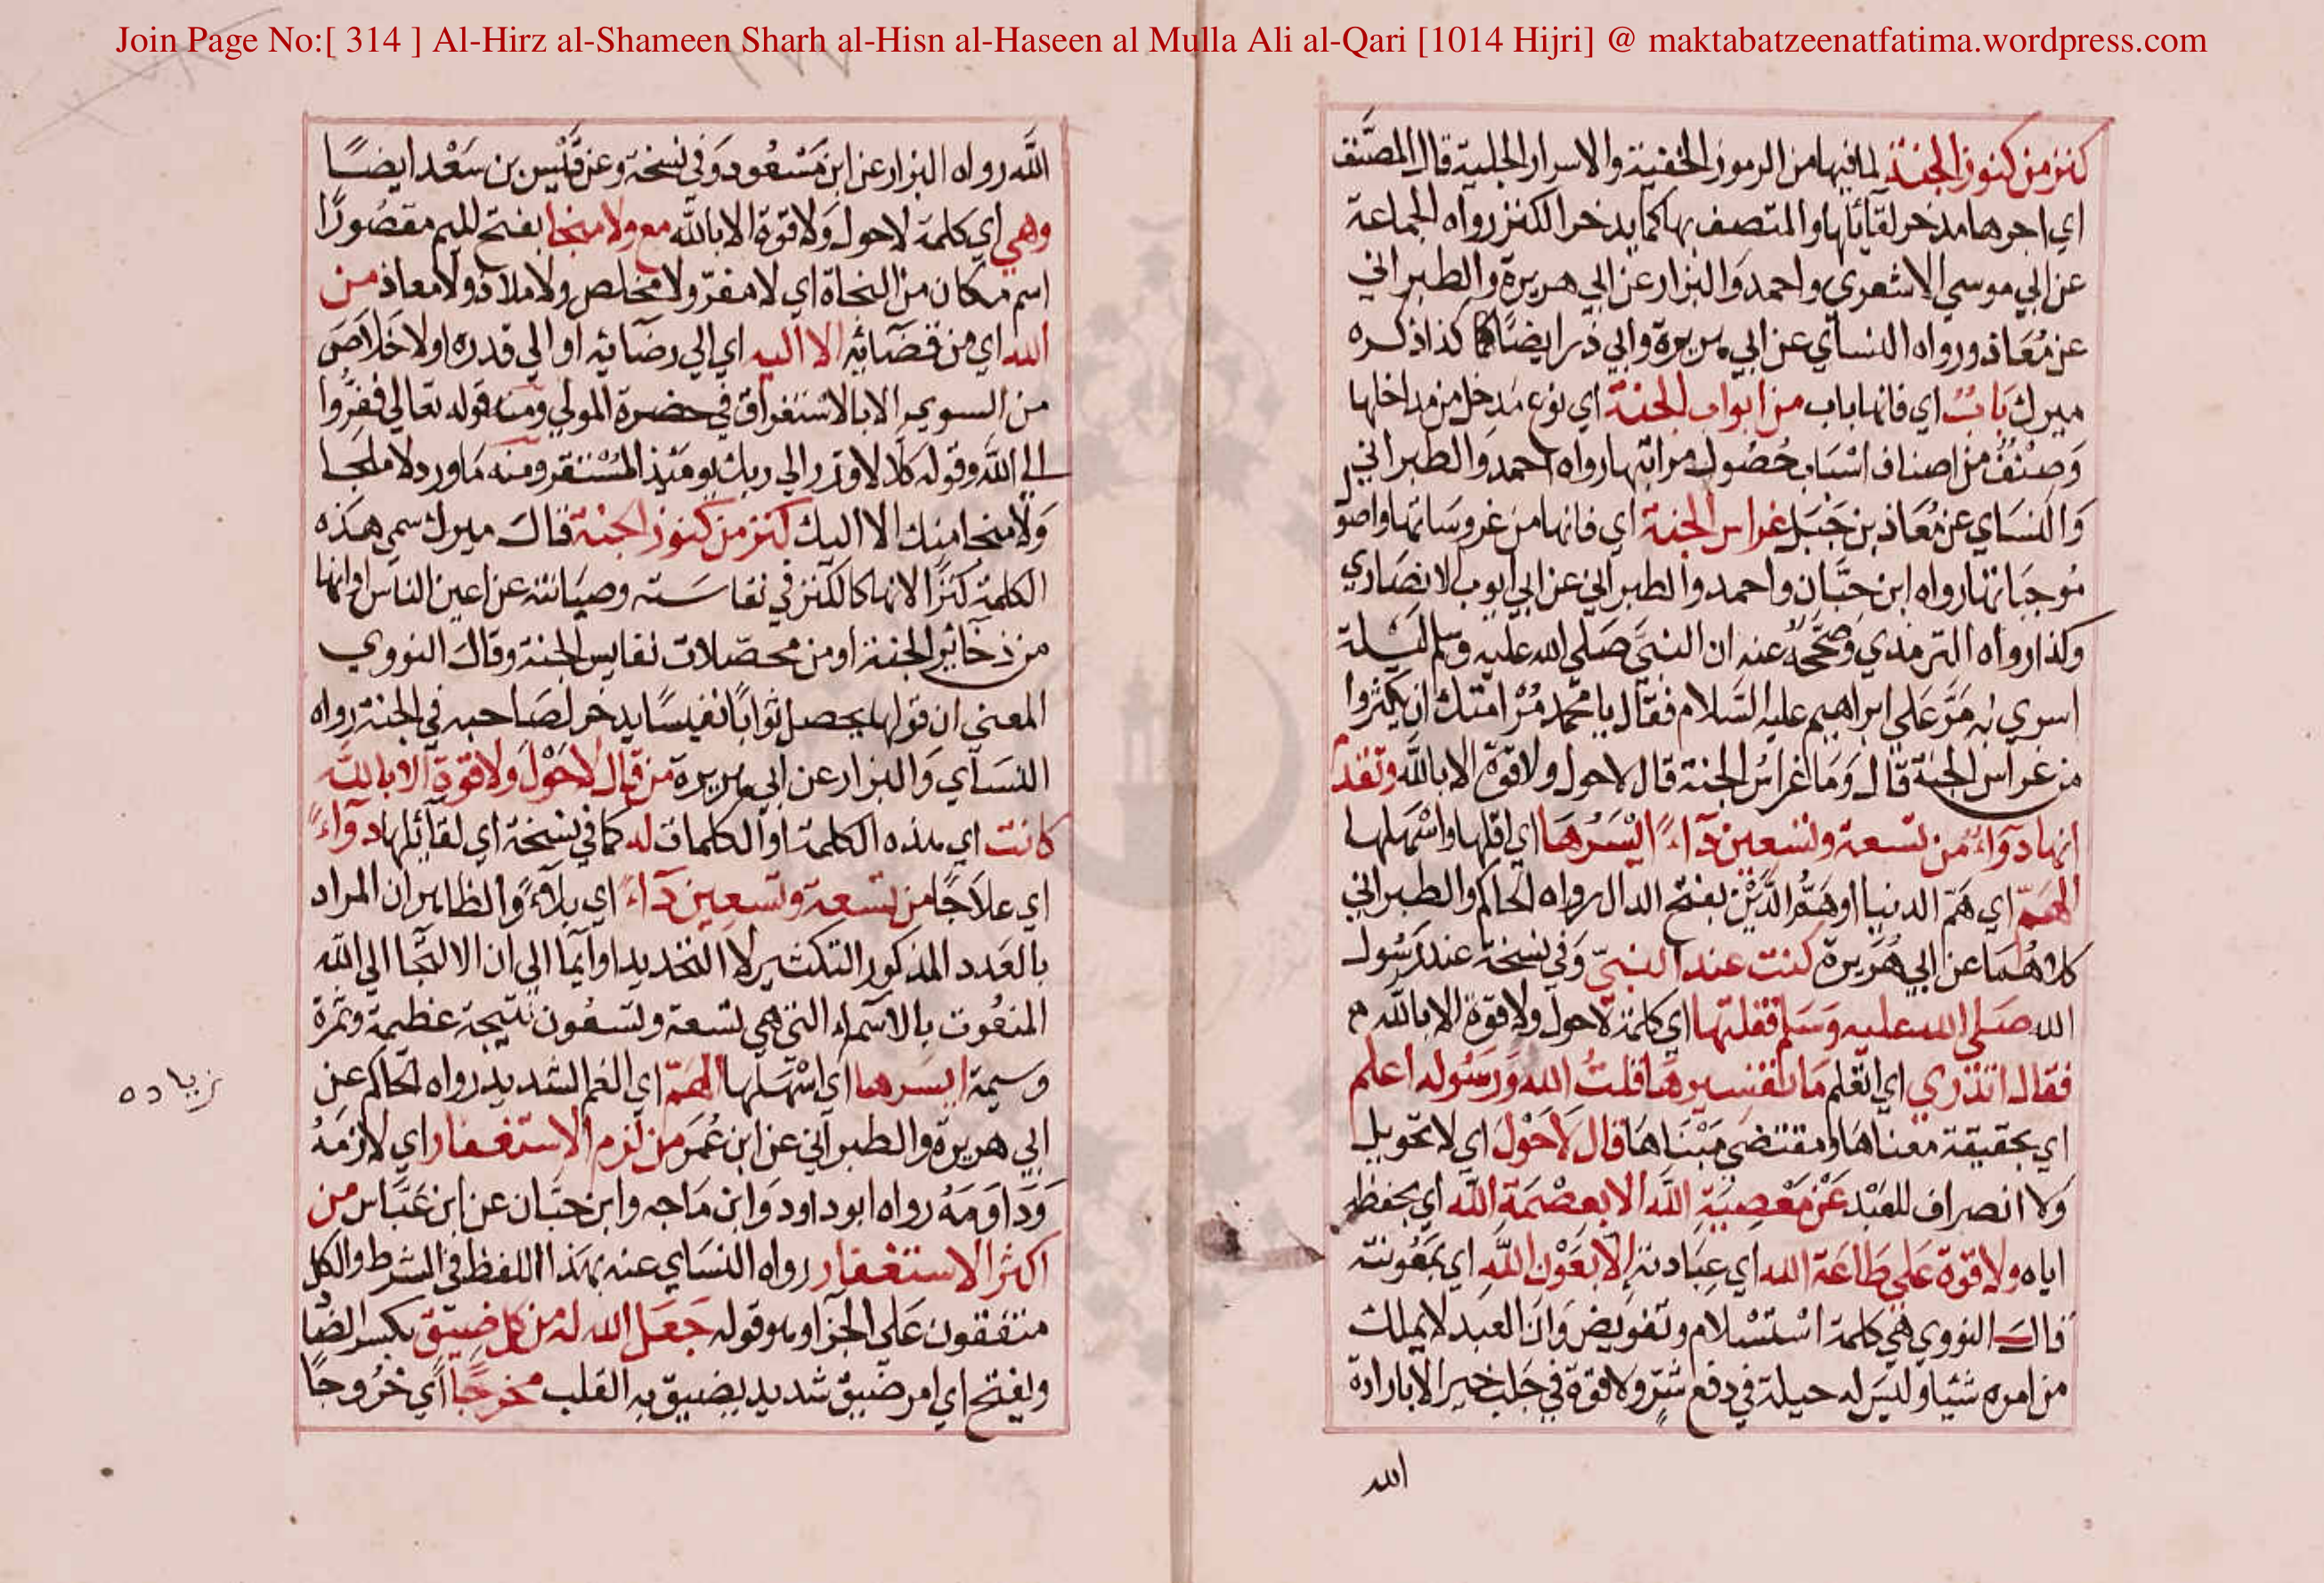 Join Page No:[ 314 ] Al-Hirz al-Shameen Sharh al-Hisn al-Haseen al Mulla Ali al-Qari [1014 Hijri] @ maktabatzeenatfatima.wordpress.com
كنز من كنوز الجنة لما فيها من الرموز الخفية والاسرار الجلية قال المصنف
اي اجرها مدخر لقآئلها والمتصف بها كما يدخر الكنز رواه الجماعة
عن ابي موسي الاشعري واحمد والبزار عن ابي هريرة والطبراني
عن معاذ ورواه النسآي عن ابي هريرة وابي ذر ايضا كذا ذكره
ميرك باب اي فانها باب من ابواب الجنة اي نوع مدخل من مداخلها
وصنف من اصناف اسباب حصول مراتبها رواه احمد والطبراني
والنساي عن معاذ بن جبل غراس الجنة اي فانها من غروساتها واصو
موجباتها رواه ابن حبان واحمد والطبراني عن ابي ايوب الانصاري
وكذا رواه الترمذي وصححه عنه ان النبي صلي الله عليه وسلم ليلة
اسري به مر علي ابراهيم عليه السلام فقال يا محمد مر امتك ان يكثروا
من غراس الجنة قال وما غراس الجنة قال لاحول ولا قوة الا بالله وتقدم
انها دوآء من تسعة وتسعين دآء ايسرها اي اقلها واسهلها
الهم اي هم الدنيا او هم الدين بفتح الدال رواه الحاكم والطبراني
كلاهما عن ابي هريرة كنت عند النبي وفي نسخة عند رسول
الله صلي الله عليه وسلم فقلتها اي كلمة لاحول ولا قوة الا بالله
فقال اتدري اي اتعلم ما تفسيرها قلت الله ورسوله اعلم
اي بحقيقة معناها ومقتضي مبناها قال لا حول اي لا تحويل
ولا انصراف للعبد عن معصية الله الا بعصمة الله اي بحفظه
اياه ولا قوة علي طاعة الله اي عبادته الا بعون الله اي بمعونته
قال النووي هي كلمة استسلام وتفويض وان العبد لا يملك
من امره شيا وليس له حيلة في دفع شر ولا قوة في جلب خير الا بارادة
الله
الله رواه البزار عن ابن مسعود وفي نسخة وعن قيس بن سعد ايضا
وهي اي كلمة لاحول ولا قوة الا بالله مع ولا منجا بفتح الميم مقصورا
اسم مكان من النجاة اي لا مفر ولا مخلص ولا ملاذ ولا معاذ من
الله اي من قضآئه الا اليه اي الي رضآئه او الي قدره اولا خلاص
من السوي الا بالاستغراق في حضرة المولي ومنه قوله تعالي ففروا
الي الله وقوله كلا لا وزر الي ربك يومئذ المستقر ومنه ما ورد لا ملجا
ولا منجا منك الا اليك كنز من كنوز الجنة قال ميرك سمي هذه
الكلمة كنزا لانها كالكنز في نفاسته وصيانته عن اعين الناس او انها
من ذخآئر الجنة او من محصلات نفايس الجنة وقال النووي
المعني ان قولها يحصل ثوابا نفيسا يدخر لصاحبه في الجنة رواه
النسآي والبزار عن ابي هريرة من قال لا حول ولا قوة الا بالله
كانت اي هذه الكلمة او الكلمات له كما في نسخة اي لقآئلها دوآء
اي علاجا من تسعة وتسعين دآء اي بلاء والظاهر ان المراد
بالعدد المذكور التكثير لا التحديد او ايما الي ان الالتجا الي الله
المنعوت بالاسماء التي هي تسعة وتسعون نتيجة عظيمة وثمرة
وسيمة ايسرها اي اسهلها الهم اي الغم الشديد رواه الحاكم عن
زياده
ابي هريرة والطبراني عن ابن عمر من لزم الاستغفار اي لازمه
وداومه رواه ابو داود وابن ماجه وابن حبان عن ابن عباس من
اكثر الاستغفار رواه النساي عنه بهذا اللفظ في الشرط والكل
متفقون علي الجزا وهو قوله جعل الله له من كل ضيق بكسر الضا
ويفتح اي امر ضيق شديد يضيق به القلب مخرجا اي خروجا